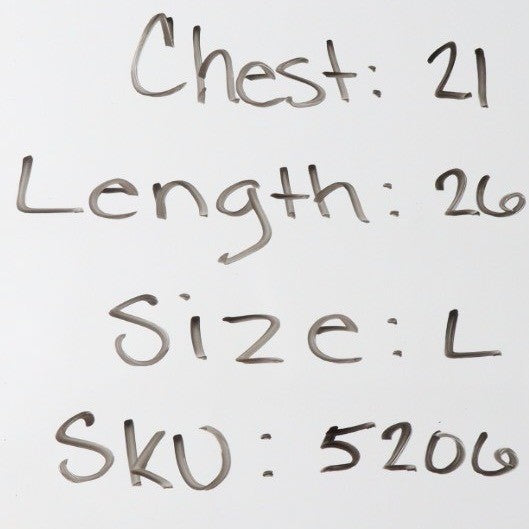 Chest: 21
Length: 26
Size: L
SKU: 5206